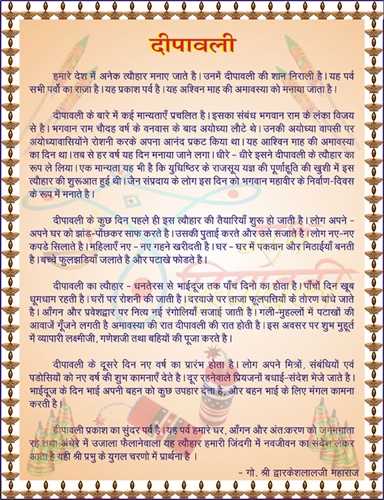 दीपावली
हमारे देश में अनेक त्यौहार मनाए जाते है। उनमें दीपावली की शान निराली है। यह पर्व
सभी पर्वो का राजा है। यह प्रकाश पर्व है। यह अश्विन माह की अमावस्या को मनाया जाता है।
दीपावली के बारे में कई मान्यताएँ प्रचलित है। इसका संबंध भगवान राम के लंका विजय
से है। भगवान राम चौदह वर्ष के वनवास के बाद अयोध्या लौटे थे। उनकी अयोध्या वापसी पर
अयोध्यावासियोंने रोशनी करके अपना आनंद प्रकट किया था। यह आश्विन माह की अमावस्या
का दिन था। तब से हर वर्ष यह दिन मनाया जाने लगा। धीरे - धीरे इसने दीपावली के त्यौहार का
रूप ले लिया। एक मान्यता यह भी है कि युधिष्ठिर के राजसूय यज्ञ की पूर्णाहूति की खुशी में इस
त्यौहार की शुरूआत हुई थी। जैन संप्रदाय के लोग इस दिन को भगवान महावीर के निर्वाण-दिवस
के रूप में मनाते है।
दीपावली के कुछ दिन पहले ही इस त्यौहार की तैयारियाँ शुरू हो जाती है। लोग अपने -
अपने घर को झाड-पोंछकर साफ करते है। उसकी पुताई करते और उसे सजाते है। लोग नए-नए
कपडे सिलाते है। महिलाएँ नए - नए गहने खरीदती है। घर - घर में पकवान और मिठाईयाँ बनती
है। बच्चे फुलझडियाँ जलाते है और पटाखे फोडते है।
दीपावली का त्यौहार - धनतेरस से भाईदूज तक पाँच दिनो का होता है। पाँचों दिन खूब
धूमधाम रहती है। घरों पर रोशनी की जाती है। दरवाजे पर ताजा फूलपत्तियों के तोरण बांधे जाते
है। आँगन और प्रवेशद्वार पर नित्य नई रंगोलियाँ सजाई जाती। गली-मुहल्लों में पटाखों की
आवाजें गूँजने लगती है अमावस्या की रात दीपावली की रात होती है। इस अवसर पर शुभ मुहूर्त
में व्यापारी लक्ष्मीजी, गणेशजी तथा बहियों की पूजा करते है।
दीपावली के दूसरे दिन नए वर्ष का प्रारंभ होता है। लोग अपने मित्रों, संबंधियों एवं
पडोसियों को नए वर्ष की शुभ कामनाएँ देते है। दूर रहनेवाले प्रियजनों बधाई-संदेश भेजे जाते है।
भाईदूज के दिन भाई अपनी बहन को कुछ उपहार देता है, और बहन भाई के लिए मंगल कामना
करती है।
दीपावली प्रकाश का सुंदर पर्व है। यह पर्व हमारे घर, आँगन और अंतःकरण को जगमगाता
रहे तथा अंधेरे में उजाला फैलानेवाला यह त्यौहार हमारी जिंदगी में नवजीवन का संदेश लेकर
आता है यही श्री प्रभु के युगल चरणो में प्रार्थना है ।
- गो. श्री द्वारकेशलालजी महाराज